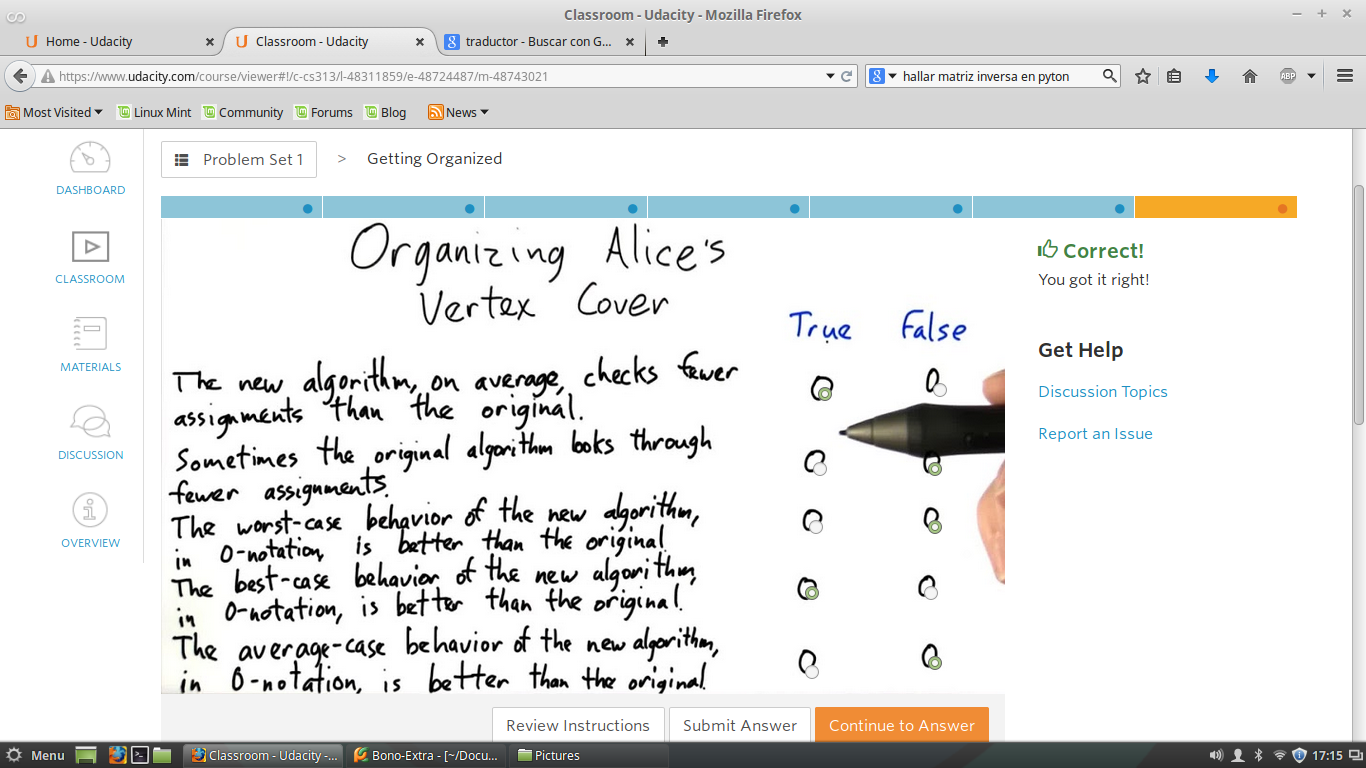 Classroom - Udacity - Mozilla Firefox
Home - Udacity
Classroom - Udacity
traductor - Buscar con G...
https://www.udacity.com/course/viewer#!/c-cs313/l-48311859/e-48724487/m-48743021
hallar matriz inversa en pyton
ABP
Most Visited
Linux Mint
Community
Forums
Blog
News
DASHBOARD
CLASSROOM
MATERIALS
DISCUSSION
OVERVIEW
Problem Set 1 > Getting Organized
Organizing Alice's
Vertex Cover
True False
The new algorithm, on average, checks fewer
assignments than the original.
Sometimes the original algorithm looks through
fewer assignments.
The worst-case behavior of the new algorithm,
in O-notation, is better than the original.
The best-case behavior of the new algorithm,
in O-notation, is better than the original.
The average-case behavior of the new algorithm,
in O-notation, is better than the original.
Correct!
You got it right!
Get Help
Discussion Topics
Report an Issue
Review Instructions
Submit Answer
Continue to Answer
Menu
Classroom - Udacity -...
Bono-Extra - [~/Docu...
Pictures
17:15